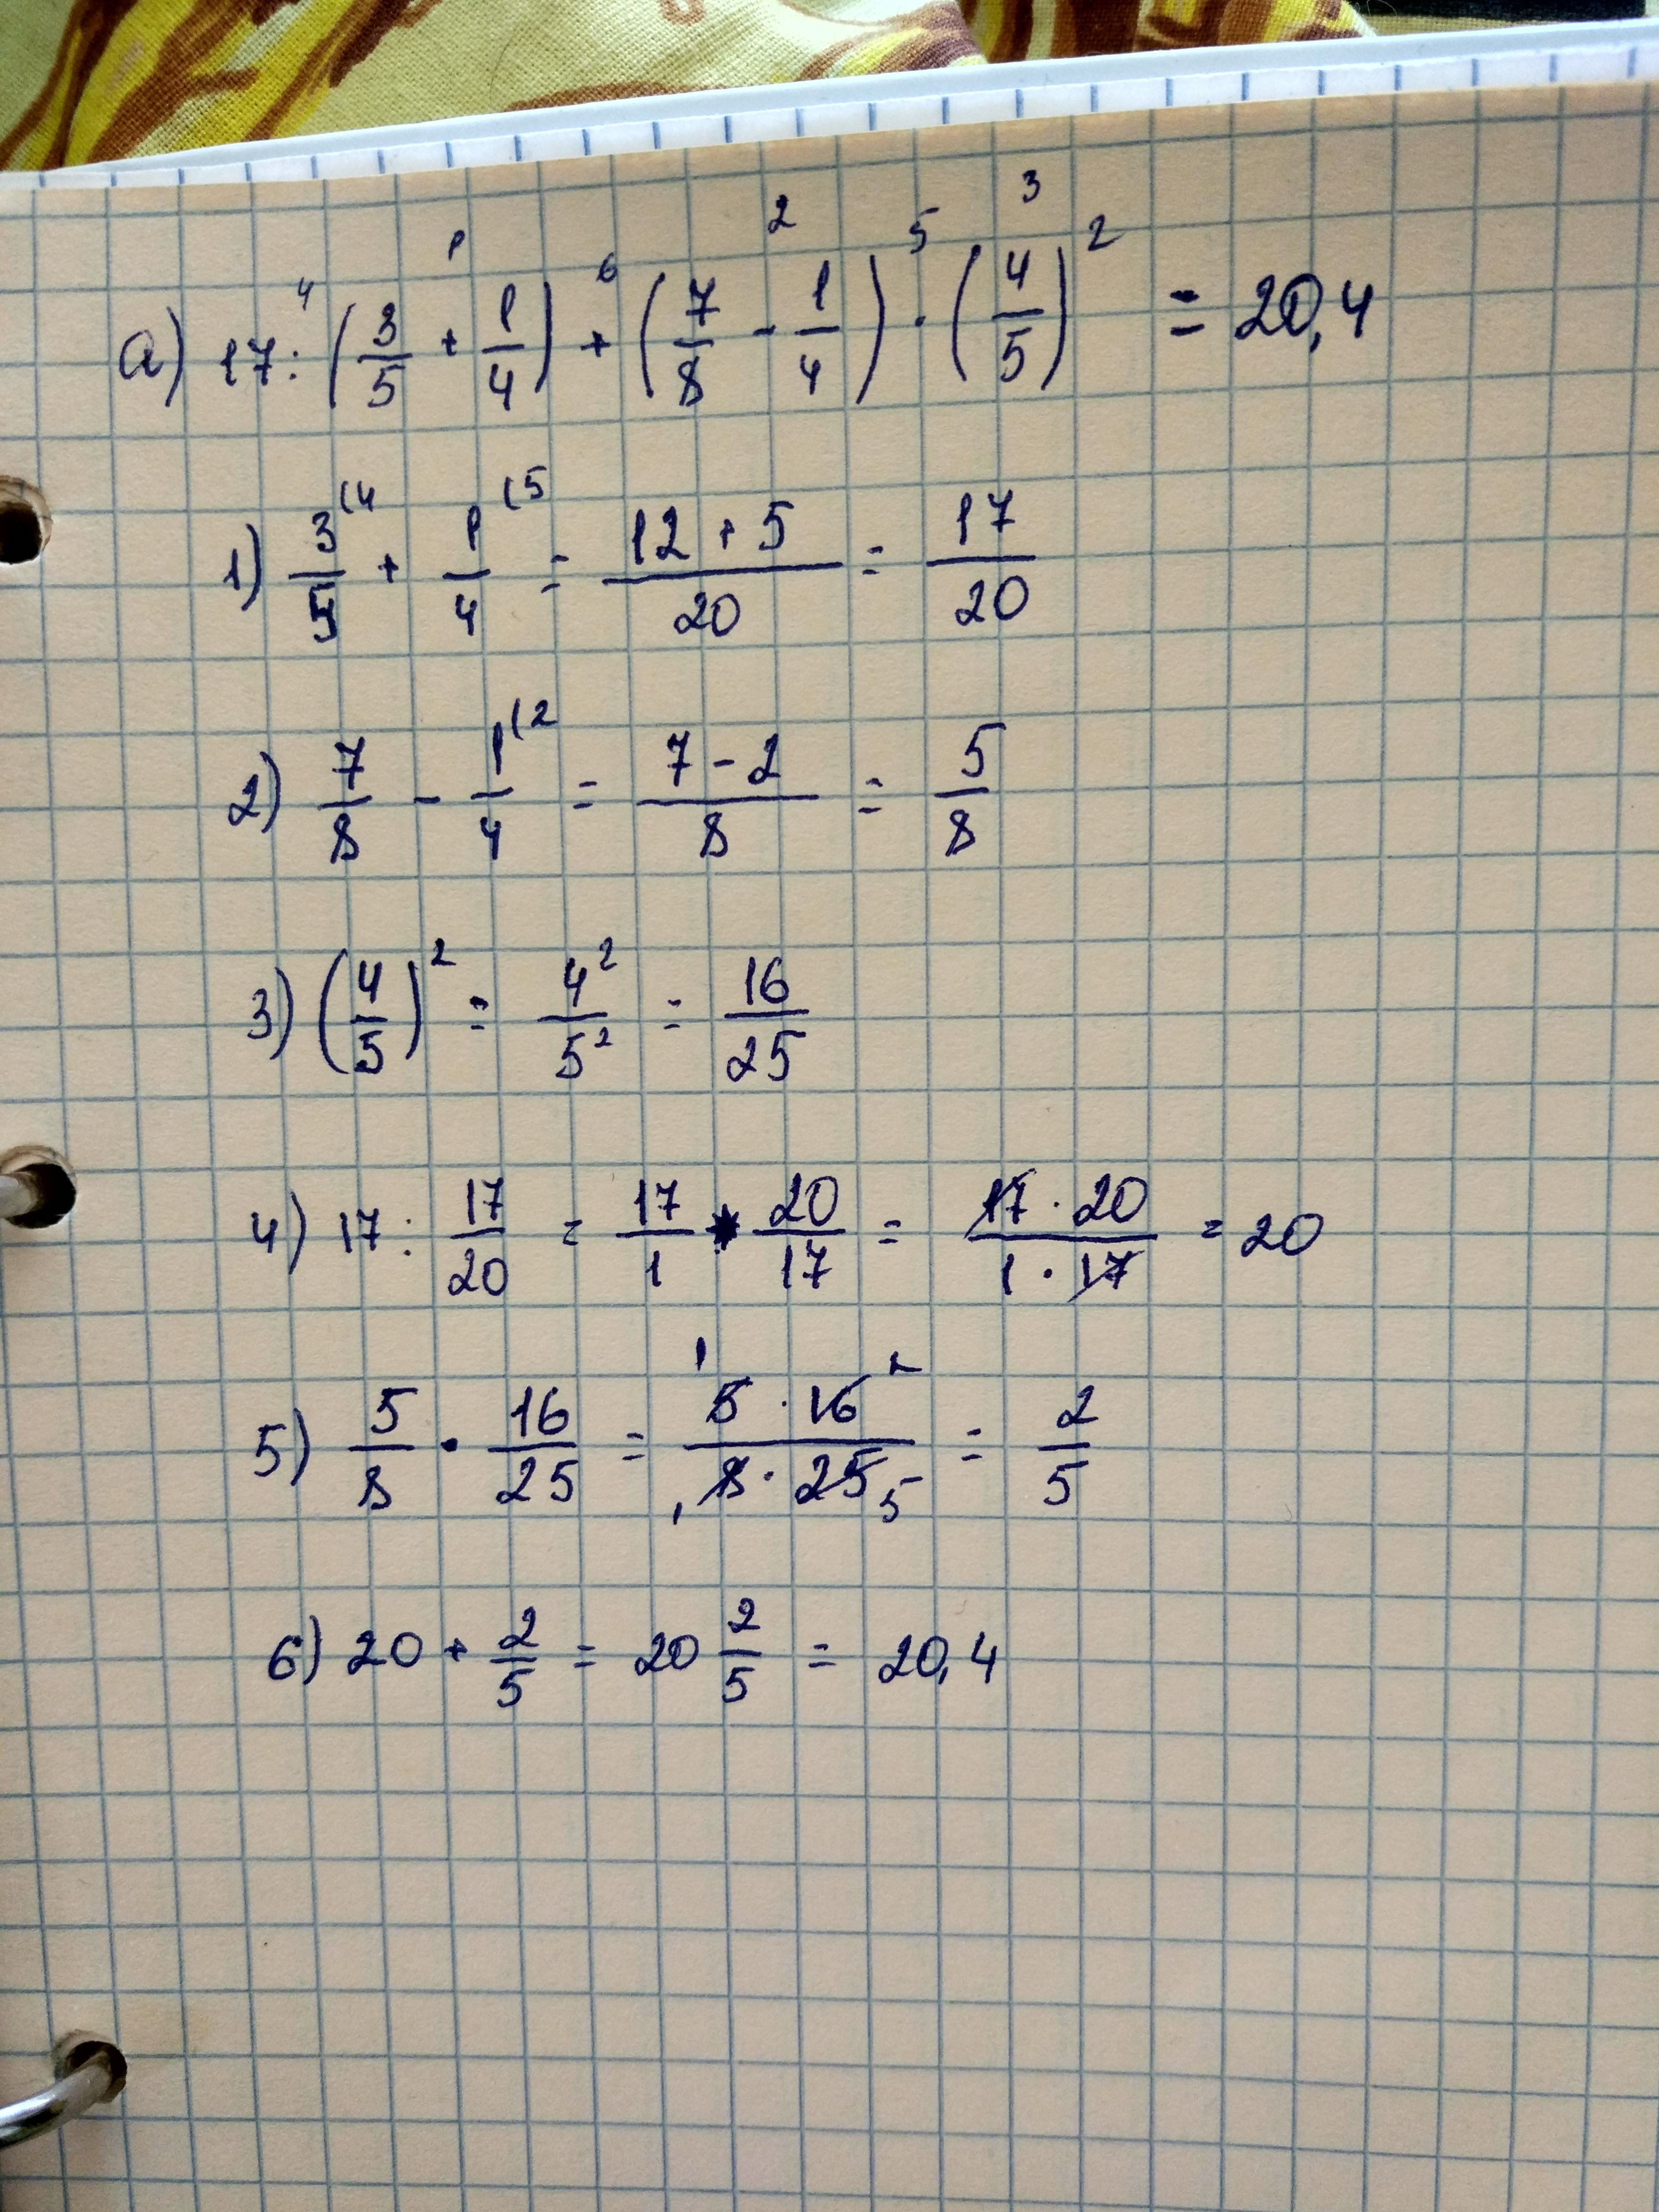 4 1 6 2 5 3
а) 17 : (3/5 + 1/4) + (7/8 - 1/4) · (4/5)² = 20,4
1) 3/5 (4 + 1/4 (5 = 12 + 5/20 = 17/20
2) 7/8 - 1/4 (2 = 7 - 2/8 = 5/8
3) (4/5)² = 4²/5² = 16/25
4) 17 : 17/20 = 17/1 · 20/17 = 17 · 20/1 · 17 = 20
5) 5/8 · 16/25 = 1 5 · 16 2/1 8 · 25 5 = 2/5
6) 20 + 2/5 = 20 2/5 = 20,4